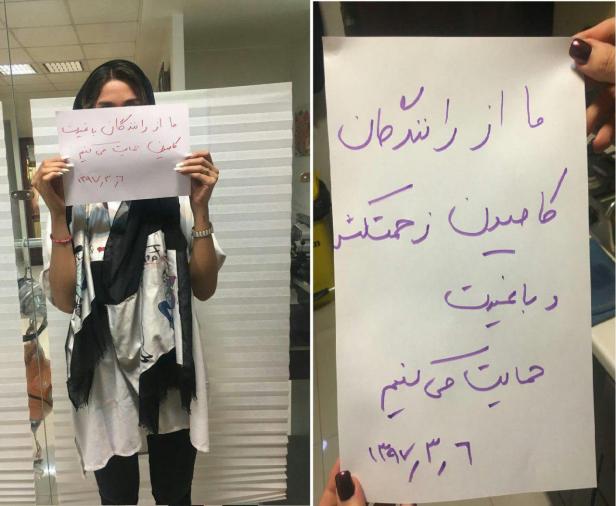 ما از رانندگان باغیرت
کامیون حمایت می کنیم
۱۳۹۷٫۳٫۶
ما از رانندگان
کامیون زحمتکش
و باغیرت
حمایت می کنیم
۱۳۹۷٫۳٫۶